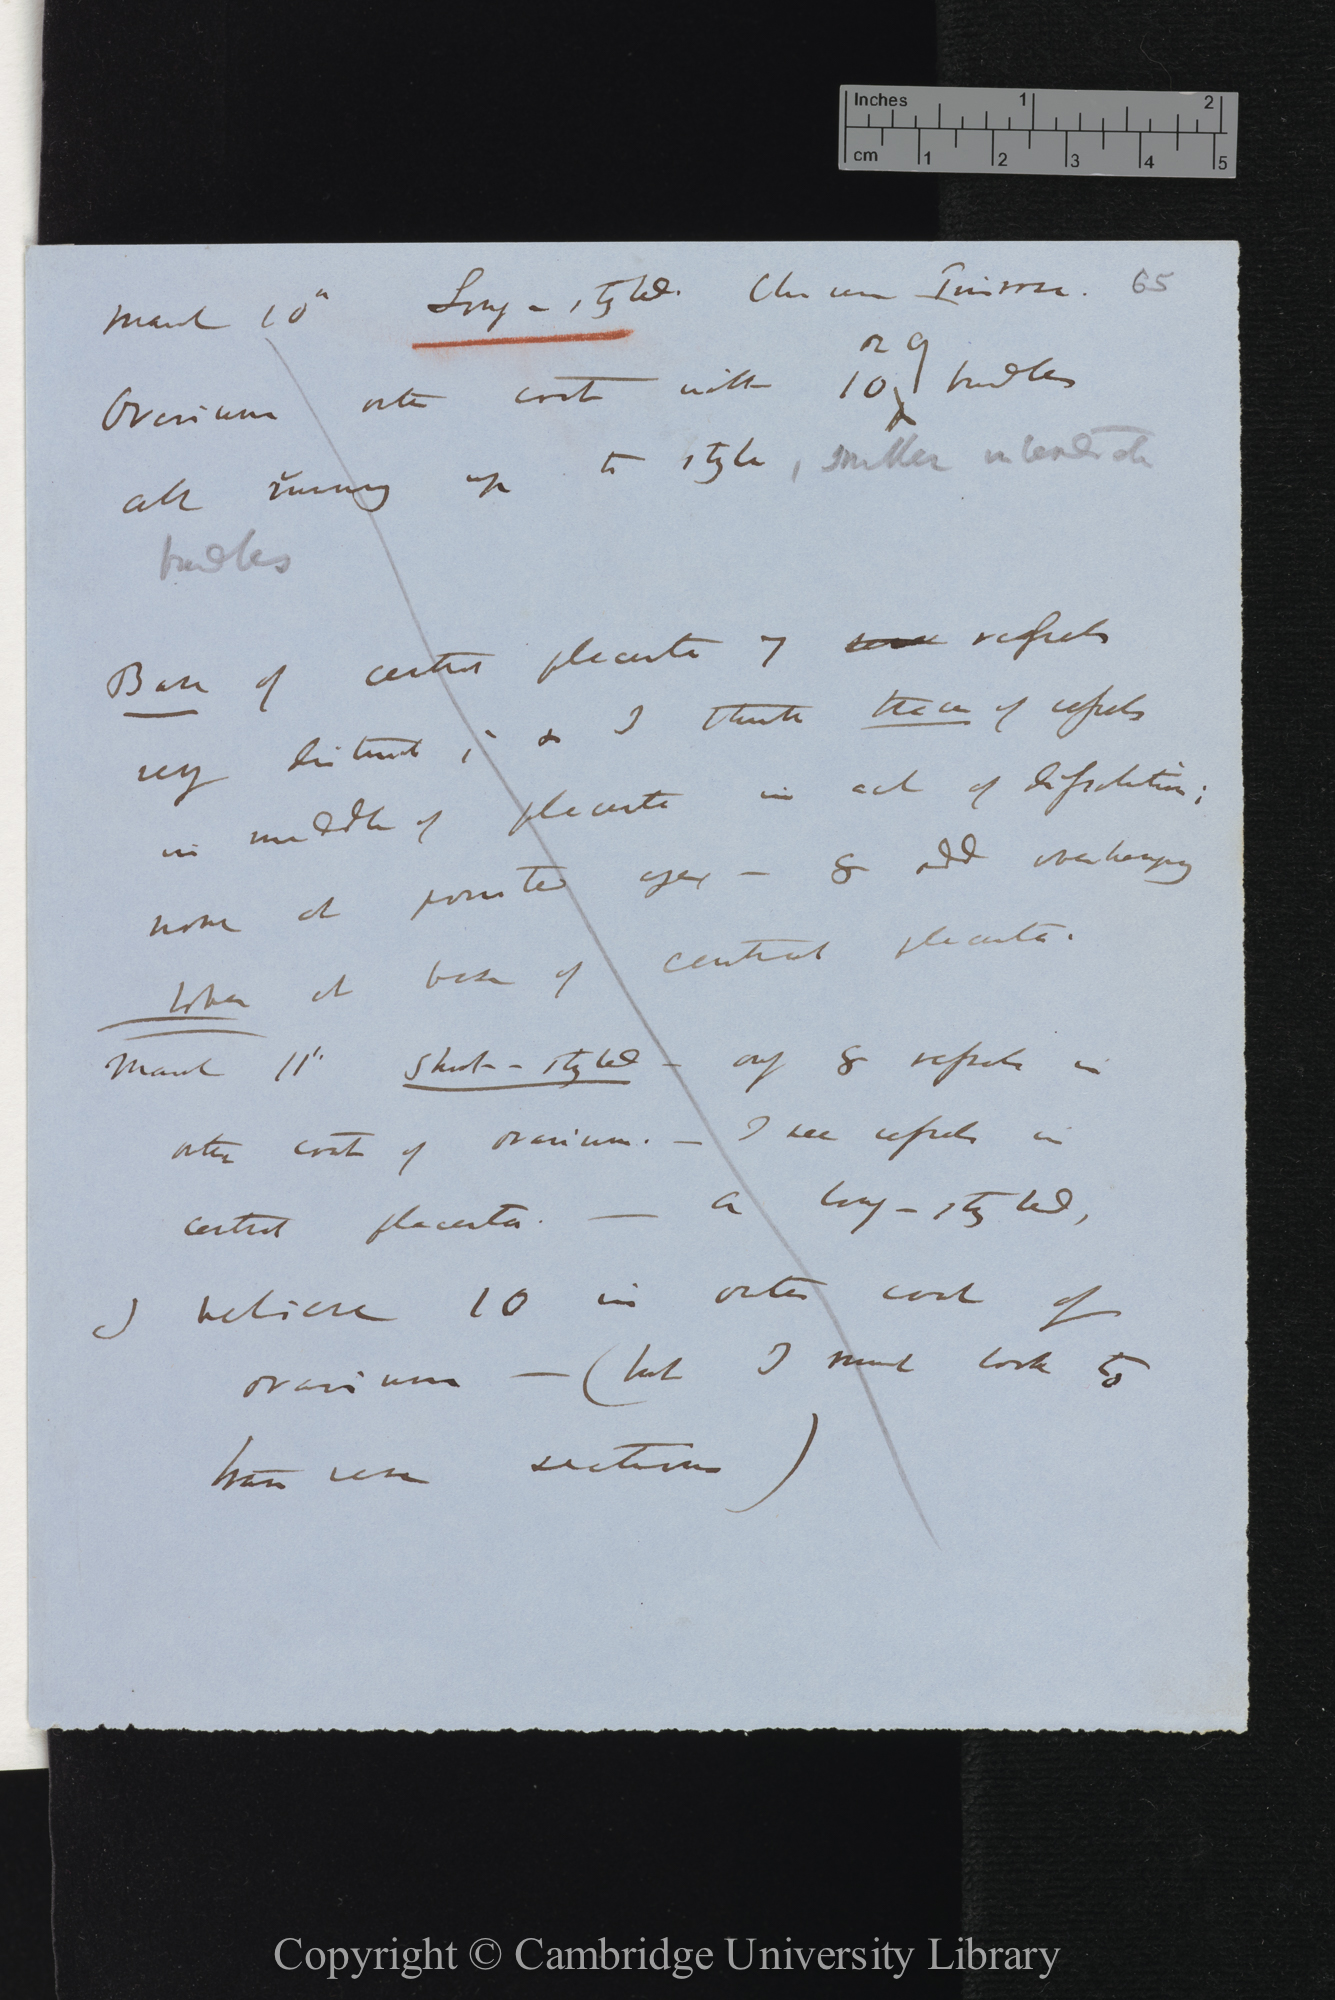 Inches 1 2
cm 1 2 3 4 5
March 10th Long-styled. Chinese Primrose. 65
or 9
Ovarium outer coat with 10 bundles
all running up to style, smaller intermediate
bundles
Base of central placenta 7 vessels
very distinct; & I think traces of vessels
in middle of placenta in act of dissolution;
none at pointed apex — 8 odd overhanging
lobes at base of central placenta.
March 11th Short-styled — only 8 vessels in
outer coat of ovarium. — I see vessels in
central placenta. — In long-styled,
I believe 10 in outer coat of
ovarium — (but I must look to
transverse sections)
Copyright © Cambridge University Library